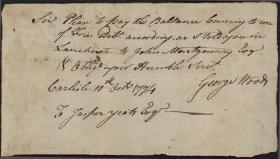 Sir Please to pay the Ballance Coming to me
of Fries Debt according as I told you in
Lancaster to John Montgomery Esqr
& Oblige your Humble Servt.
George Woods
Carlisle 10th Octr 1774
To Jasper yeats Esqr